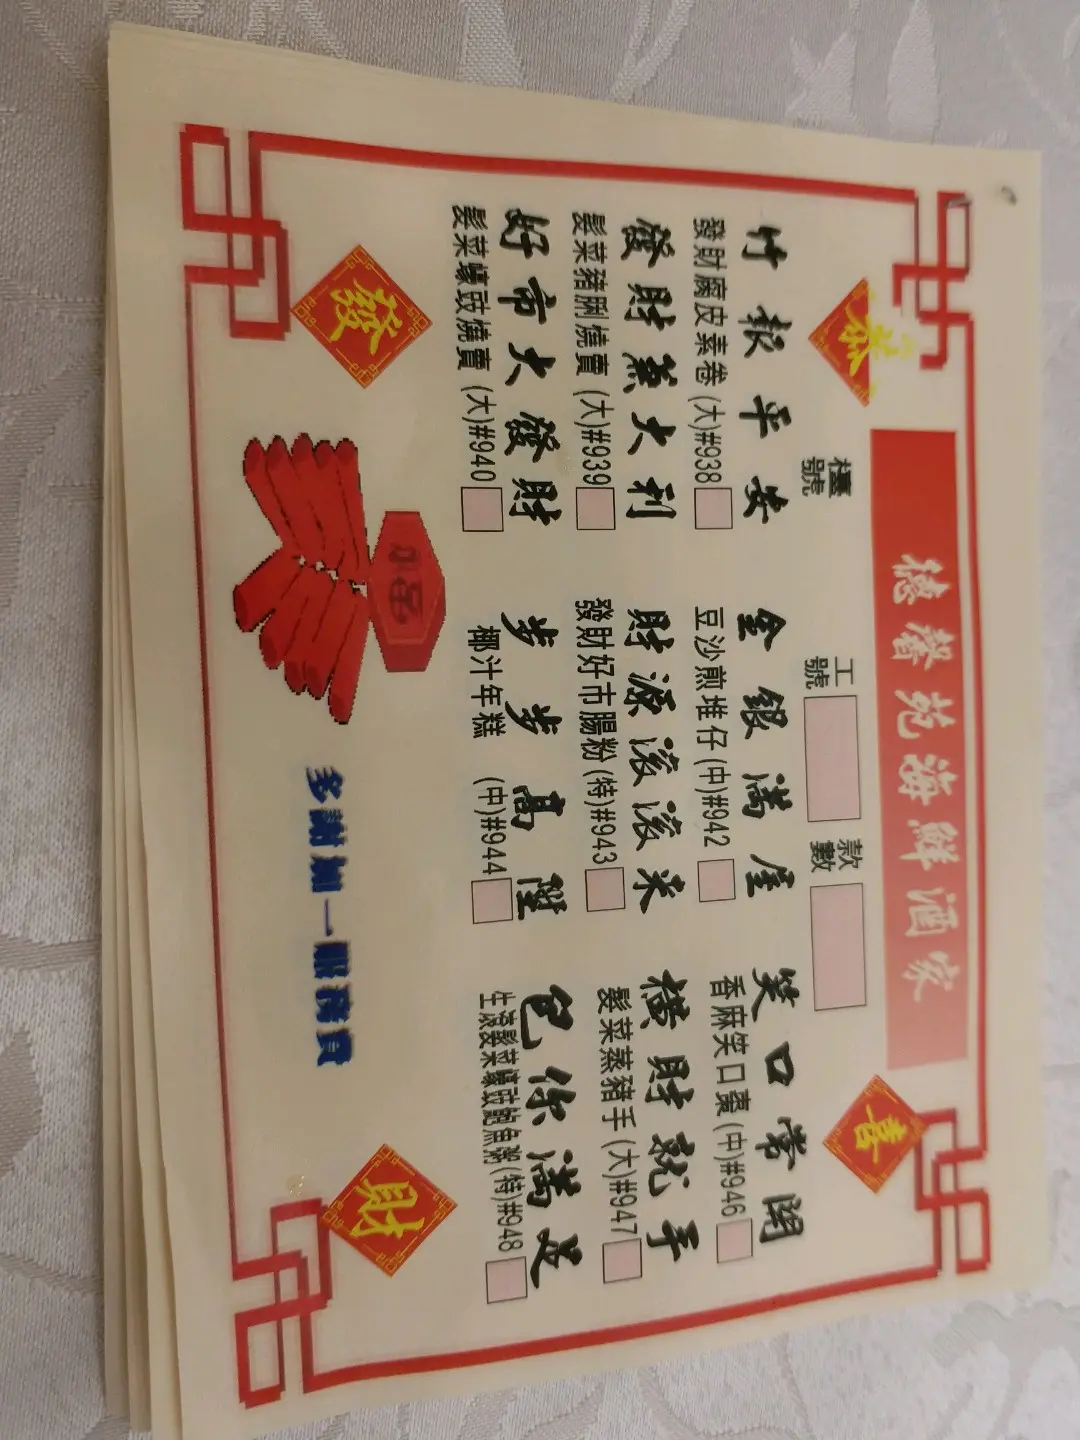 德馨苑海鮮酒家
恭
喜
檯號
工號
款數
竹報平安
發財腐皮素卷 (大)#938
金銀滿屋
豆沙煎堆仔 (中)#942
笑口常開
香麻笑口棗 (中)#946
發財兼大利
髮菜豬脷燒賣 (大)#939
財源滾滾來
發財好市腸粉 (特)#943
橫財就手
髮菜蒸豬手 (大)#947
好市大發財
髮菜蠔豉燒賣 (大)#940
步步高陞
椰汁年糕 (中)#944
包你滿足
生滾髮菜蠔豉鮑魚粥 (特)#948
發
財
多謝加一服務費